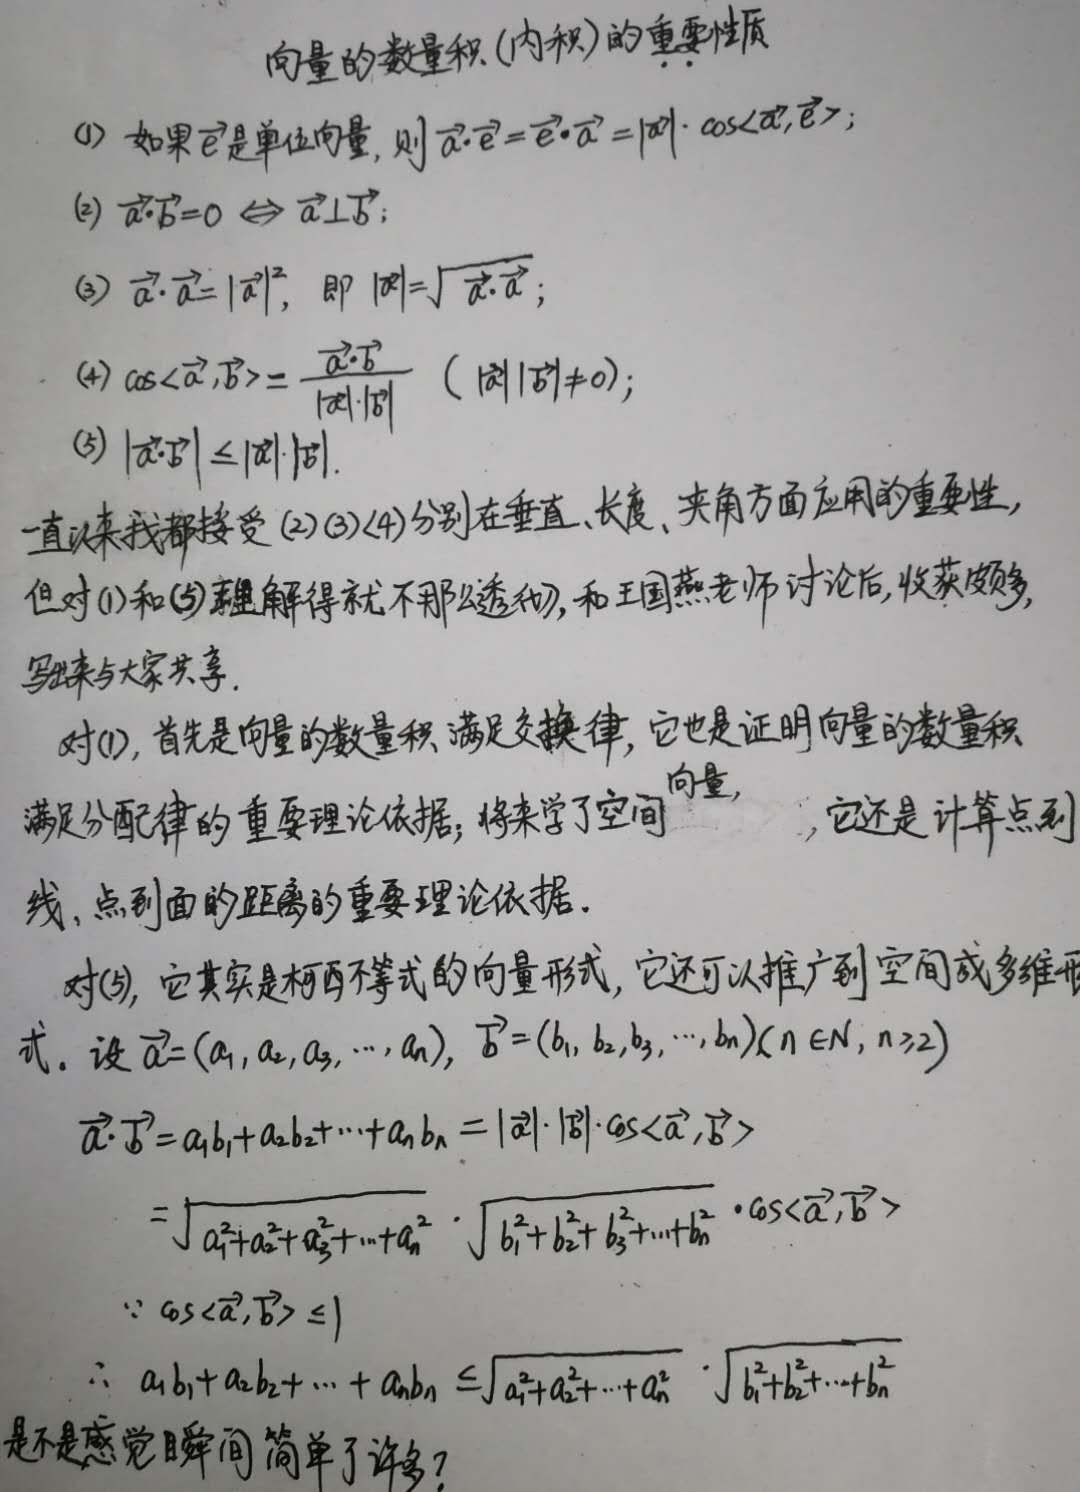 向量的数量积(内积)的重要性质
(1) 如果e⃗是单位向量,则a⃗·e⃗=e⃗·a⃗=|a⃗|·cos<a⃗,e⃗>;
(2) a⃗·b⃗=0 ⇔ a⃗⊥b⃗;
(3) a⃗·a⃗=|a⃗|²,即|a⃗|=√(a⃗·a⃗);
(4) cos<a⃗,b⃗>=(a⃗·b⃗)/(|a⃗|·|b⃗|) (|a⃗||b⃗|≠0);
(5) |a⃗·b⃗|≤|a⃗|·|b⃗|.
一直以来我都接受(2)(3)(4)分别在垂直、长度、夹角方面应用的重要性,
但对(1)和(5)理解得就不那么透彻,和王国燕老师讨论后,收获颇多,
写出来与大家共享.
对(1),首先是向量的数量积满足交换律,它也是证明向量的数量积
满足分配律的重要理论依据;将来学了空间向量,,它还是计算点到
线、点到面的距离的重要理论依据.
对(5),它其实是柯西不等式的向量形式,它还可以推广到空间或多维形
式。设a⃗=(a₁,a₂,a₃,…,aₙ),b⃗=(b₁,b₂,b₃,…,bₙ)(n∈N,n≥2)
a⃗·b⃗=a₁b₁+a₂b₂+…+aₙbₙ=|a⃗|·|b⃗|·cos<a⃗,b⃗>
=√(a₁²+a₂²+a₃²+…+aₙ²)·√(b₁²+b₂²+b₃²+…+bₙ²)·cos<a⃗,b⃗>
∵ cos<a⃗,b⃗>≤1
∴ a₁b₁+a₂b₂+…+aₙbₙ≤√(a₁²+a₂²+…+aₙ²)·√(b₁²+b₂²+…+bₙ²)
是不是感觉瞬间简单了许多?